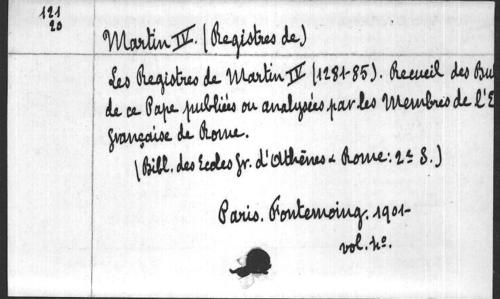 121
20
Martin IV. (Registres de)
Les Registres de Martin IV (1281-85). Recueil des Bul
de ce Pape publiées ou analysées par les Membres de l'E
française de Rome.
(Bibl. des Ecoles fr. d'Athènes & Rome: 2e S.)
Paris. Fontemoing. 1901-
vol. 4o.